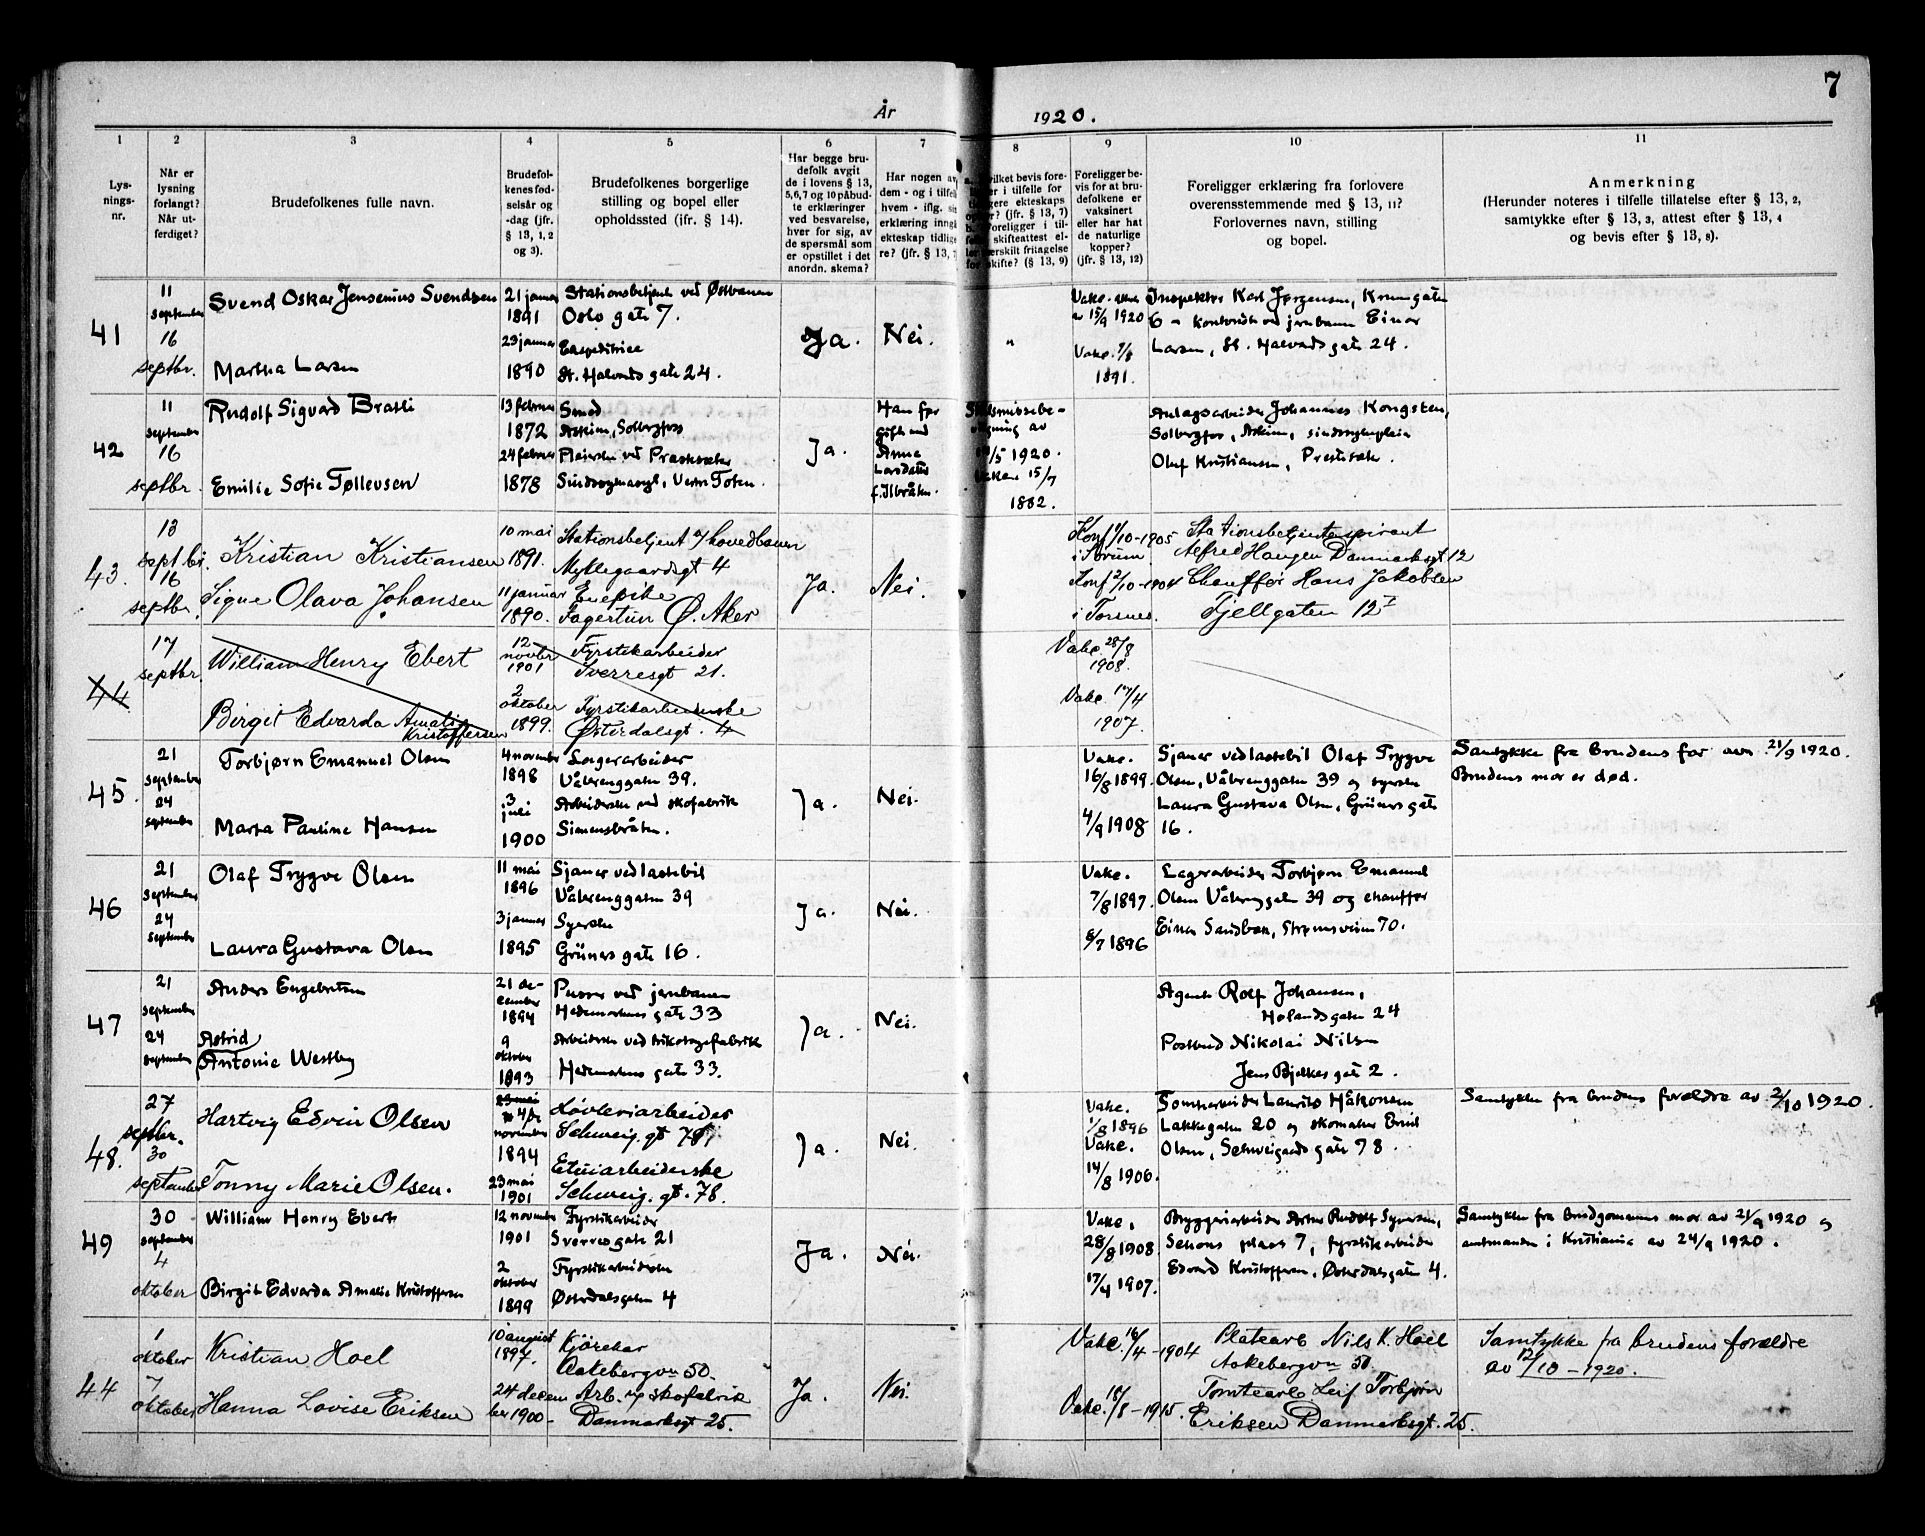 7
År 1920.
1 2 3 4 5 6 7 8 9 10 11
Lys-
nings-
nr.
Når er
lysning
forlangt?
Når ut-
ferdiget?
Brudefolkenes fulle navn.
Brudefol-
kenes fød-
selsår og
-dag (jfr.
§ 13, 1, 2
og 3).
Brudefolkenes borgerlige
stilling og bopel eller
opholdssted (ifr. § 14).
Har begge bru-
defolk avgit
de i lovens § 13,
5,6,7 og 10 påbud-
te erklæringer
ved besvarelse,
hver for sig, av
de spørsmål som
er opstillet i det
anordn. skema?
Har nogen av
dem - og i tilfelle
hvem - iflg. sin
erklæring inngått
ekteskap tidlige-
re? (jfr. § 13, 7
Foreligger be-
vis for at bru-
defolkene er
vaksinert
eller har hat
de naturlige
kopper?
(jfr. § 13, 12)
Foreligger erklæring fra forlovere
overensstemmende med § 13, 11?
Forlovernes navn, stilling
og bopel.
Anmerkning
(Herunder noteres i tilfelle tillatelse efter § 13, 2,
samtykke efter § 13, 3, attest efter § 13, 4
og bevis efter § 13, 8).
41
11
september
16
septbr.
Svend Oskar Jensenius Svendsen
Martha Larsen
21 januar
1891
23 januar
1890
Stationsbetjent ved Østbanen
Oslo gate 7.
Expeditrice
St. Halvards gate 24.
Ja.
Nei.
"
1920
1891.
Inspektør Karl Jørgensen,
6 - kontorist ved jernbanen Einar
Larsen, St. Halvards gate 24.
42
11
september
16
septbr.
Rudolf Sigvard Bratli
Emilie Sofie Tøllevsen
13 februar
1872
24 februar
1878
Smed
Askim, Solbergfoss
Pleierske ved
Sindssykeasyl, Vestre Toten.
Ja.
Han før
gift med
Anna
Larsdatter
1920.
1882.
Anlægsarbeider Johannes Kongsten,
Solbergfoss, Askim,
Olaf Kristiansen,
43.
13
septbr.
16
septbr.
Kristian Kristiansen
Signe Olava Johansen
10 mai
1891.
11 januar
1890.
Stationsbetjent v/ hovedbanen
Nyklegaardsgt 4
Enepike
Fagertun Ø. Aker
Ja.
Nei.
Konf 1/10-1905
i Sørum
Konf 2/10-1904
i Torsnes.
Stationsbetjentaspirant
Alfred Haugen Danmarksgt 12
Chauffør Hans Jakobsen
Fjellgaten 12 I
44
17
septbr.
William Henry Ebert
Birgit Edvarda Amalie
Kristoffersen
12
novbr
1901
2
oktober
1899.
Fyrstikarbeider
Sverresgt 21.
Fyrstikarbeiderske
Østerdalsgt. 4
Vakc. 28/8
1908.
Vakc. 17/4
1907.
45.
21
september
24
september
Torbjørn Emanuel Olsen
Marta Pauline Hansen
4 november
1898
3
juli
1900
Lagerarbeider
Vålerenggaten 39.
Arbeiderske ved skofabrik
Simensbråten.
Ja.
Nei.
Vakc.
16/8 1899.
4/9 1908
Sjauer ved lastebil Olaf Trygve
Olsen, Vålerenggaten 39 og syerske
Laura Gustava Olsen, Grüners gate
16.
Samtykke fra brudens far avn 21/9 1920.
Brudens mor er død.
46
21
september
24
september
Olaf Trygve Olsen
Laura Gustava Olsen
11 mai
1896
3 januar
1895
Sjauer ved lastebil
Vålerenggaten 39
Syerske
Grüners gate 16.
Ja.
Nei.
Vakc.
7/8 1897.
8/7 1896
Lagerarbeider Torbjørn Emanuel
Olsen Vålerenggaten 39 og chauffør
Einar Sandbæk, Strømsveien 70.
47
21
september
24
september
Anders Engebretsen
Astrid
Antonie Westby
21 de-
cember
1894
9
oktober
1893
Pusser ved jernbanen
Hedemarkens gate 33
Arbeiderske ved trikotagefabrik
Hedemarkens gate 33.
Ja.
Nei.
Agent Rolf Johansen,
Hølandsgaten 24
Postbud Nikolai Nilsen
Jens Bjelkes gate 2.
48.
27
septbr.
30
september
Hartvig Edvin Olsen
Tonny Marie Olsen.
november
1894
23 mai
1901
Høvleriarbeider
Schweig. gt 78,
Etuiarbeiderske
Schweig. gt. 78.
Ja.
Nei.
Vakc.
1/8 1896
Vakc.
14/8 1906.
Tomtearbeider Laurits Håkonsen
Lakkegaten 20 og skomaker
Olsen, Schweigaards gate 78.
Samtykke fra brudens forældre av 2/10 1920.
49
30
september
4
oktober
William Henry Ebert
Birgit Edvarda Amalie Kristoffersen
12 november
1901
2
oktober
1899
Fyrstikarbeider
Sverres gate 21
Fyrstikarbeiderske
Østerdalsgaten 4
Ja.
Nei.
Vakc.
28/8 1908.
17/4 1907.
Bryggeriarbeider Rudolf Syversen,
Schous plass 7, fyrstikarbeider
Edvard Kristoffersen, Østerdalsgaten 4.
Samtykke fra brudgommens mor av 21/9 1920 og
amtmanden i Kristiania av 24/9 1920.
44
1
oktober
7
oktober
Kristian Hoel
Hanna Lovise Eriksen
10 august
1897.
24 decem
ber 1900-
Kjørekar
Aakebergvn 50.
Arb. v/ skofabrik
Danmarksgt 25.
Ja.
Nei.
Vakc. 16/4 - 1904
Vakc. 18/8 - 1915.
Platearb Nils K. Hoel
Aakebergvn 50.
Tomtearb Leif Torbjørn
Eriksen Danmarksgt. 25.
Samtykke fra brudens forældre
av 12/10 - 1920.